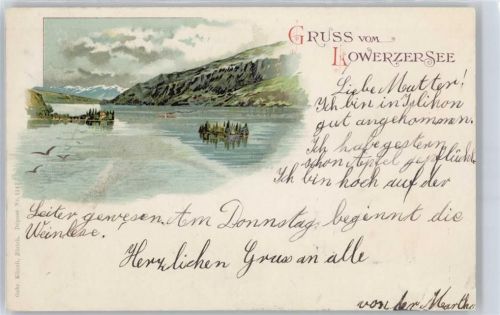 GRUSS VOM
LOWERZERSEE
Liebe Mutter!
Ich bin in Islikon
gut angekommen.
Ich habe gestern
schon Äpfel gepflückt.
Ich bin hoch auf der
Leiter gewesen. Am Donnstag beginnt die
Weinlese.
Herzlichen Gruss an alle
von der Martha
Gebr. Künzli, Zürich.